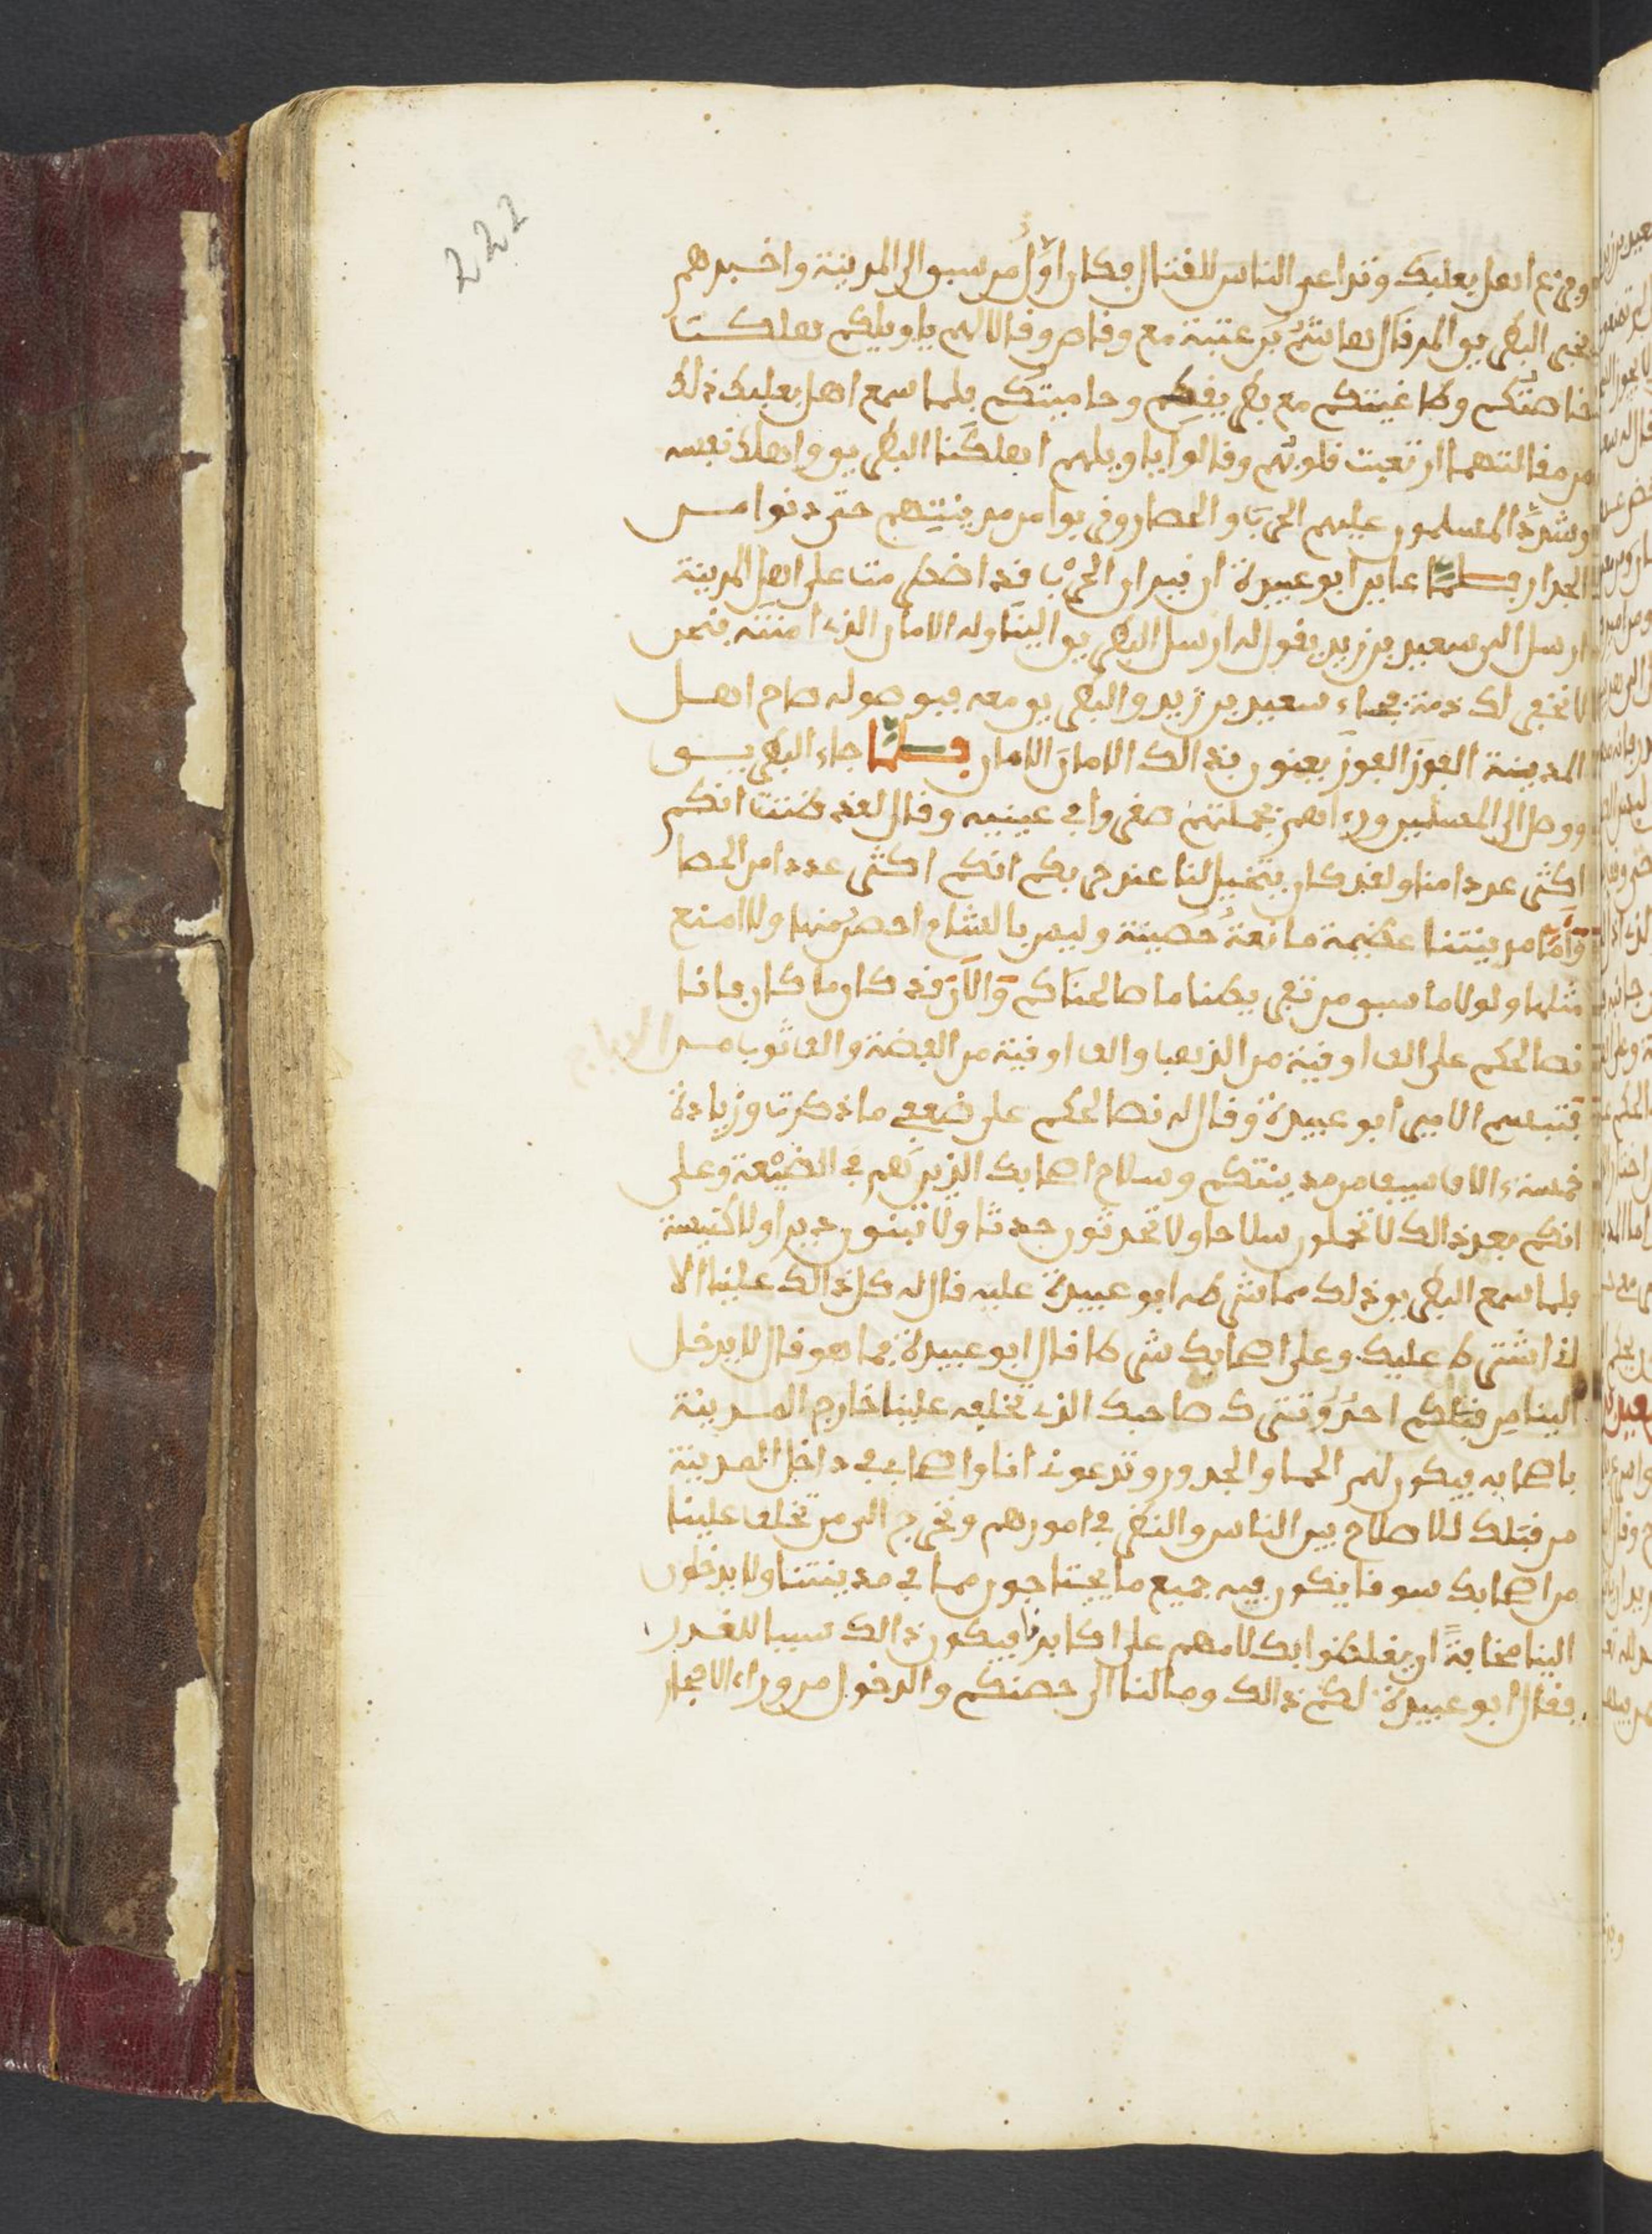 222
وفزع اهل بعلبك وتداعى الناس للقتال فكان اول من سبق الى المدينة واخبرهم
بخبر البطريق المرقال هاشم بن عتبة مع وقاص وقالا لهم ياويلكم هلكت
خاصتكم وطاغيتكم مع بطريقكم وحاميتكم فلما سمع اهل بعلبك ذلك
من مقالتهما ارتعبت قلوبهم وقالوا ياويلهم اهلكنا البطريق واهلك نفسه
وشدد المسلمون عليهم الحرب والحصار وقربوا من مدينتهم حتى دنوا من
الجدار فلما عاين ابو عبيدة ان نيران الحرب قد اضطرمت على اهل المدينة
ارسل الى سعيد بن زيد يقول له ارسل البطريق الينا وله الامان الذي امنته فنحن
لا نخفر لك ذمة فجاء سعيد بن زيد والبطريق معه فبوصوله صاح اهل
المدينة الغوز الغوز يعنون بذالك الامان الامان فلما جاء البطريق
ووصل الى المسلمين وراهم بجملتهم صغروا في عينيه وقال لقد ظننت انكم
اكثر عددا منا ولقد كان يتخيل لنا عند حربكم انكم اكثر عددا من الحصا
واما مدينتنا عظيمة مانعة حصينة وليس بالشام احصن منها ولا امنع
مثلها ولولا ما سبق من تفريطنا ما صالحناكم والان قد كان ما كان فانا
نصالحكم على الف اوقية من الذهب والف اوقية من الفضة والف ثوب من الديباج
فتبسم الامير ابو عبيدة وقال له نصالحكم على ضعفي ما ذكرت وزيادة
خمسة الاف سيف من مدينتكم وسلاح اصحابك الذين هم في الضيعة وعلى
انكم بعد ذالك لا تحملون سلاحا ولا تحدثون حدثا ولا تبنون ديرا ولا كنيسة
فلما سمع البطريق ذلك مما شرطه ابو عبيدة عليه قال له كل ذالك علينا الا
اني اشترط عليك وعلى اصحابك شرطا قال ابو عبيدة فما هو قال لا يدخل
الينا من قبلكم احد وتترك صاحبك الذي تخلفه علينا خارج المدينة
باصحابه فيكون لهم الحما والجدور وتدعوني انا واصحابي في داخل المدينة
من قبلك للاصلاح بين الناس والنظر في امورهم ونخرج الى من تخلف علينا
من اصحابك سوقا يكون فيه جميع ما يحتاجون مما في مدينتنا ولا يدخلون
الينا مخافة ان يغلظوا بكلامهم على اكابرنا فيكون ذالك سببا للغدر
فقال ابو عبيدة لكم ذالك وما لنا الى حصنكم والدخول من وراء الاحجار